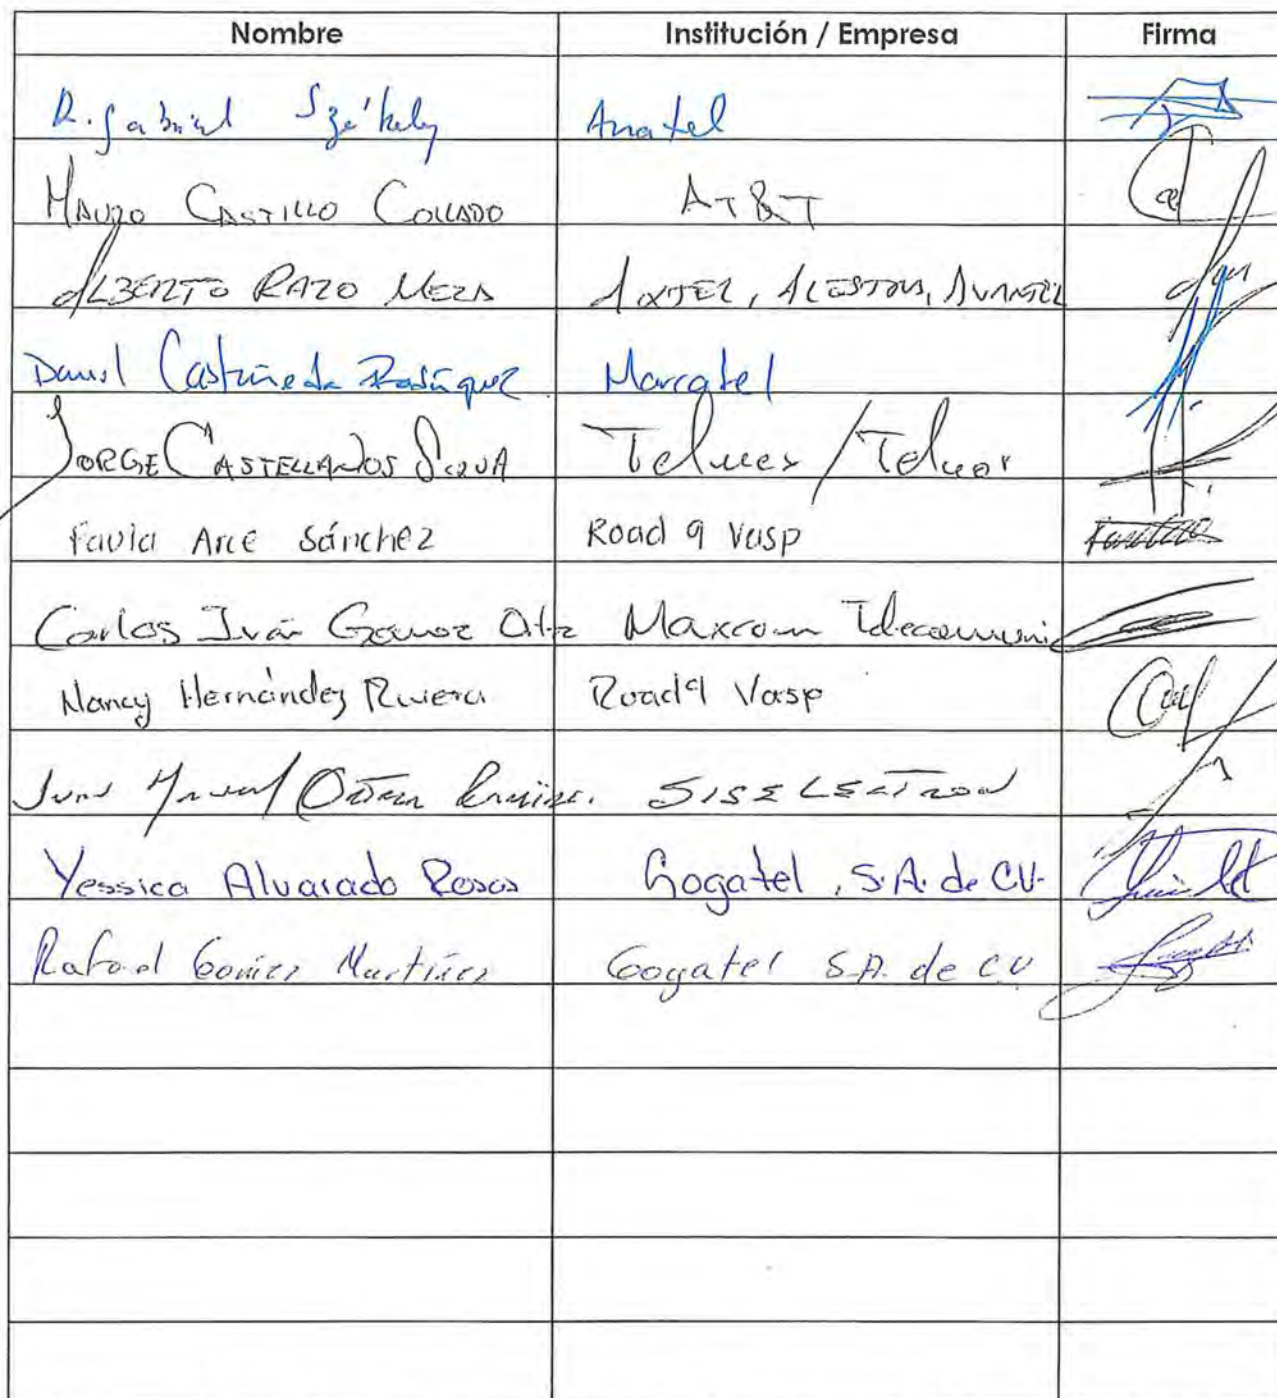 Nombre Institución / Empresa Firma
R. Gabriel Székely Anatel
MAURO CASTILLO COLLADO AT&T
ALBERTO RAZO MEZA AXTEL, ALESTRA, AVANTEL
Daniel Castañeda Rodríguez Marcatel
JORGE CASTELLANOS SILVA Telmex / Telnor
Favia Arce Sánchez Road 9 Vasp
Carlos Iván Ortiz Maxcom Telecomuni
Nancy Hernández Rivera Road9 Vasp
Juan Manuel Ramírez. SISELECTRON
Yessica Alvarado Rosas Gogatel, S.A. de CV.
Rafael Gómez Martínez Gogatel S.A. de CV